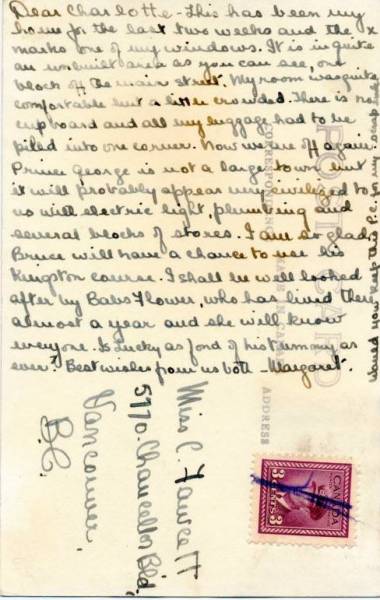 Dear Charlotte - This has been my
home for the last two weeks and the x
marks one of my windows. It is in quite
an unbuilt area as you can see, one
block off the main street. My room was quite
comfortable but a little crowded. There is no
cupboard and all my luggage had to be
piled into one corner. Now we are off again.
Prince George is not a large town but
it will probably appear very civilized to
us with electric light, plumbing and
several blocks of stores. I am so glad
Bruce will have a chance to use his
Kingston course. I shall be well looked
after by Babs Flower, who has lived there
almost a year and she will know
everyone. Is Lucky as fond of his tummy as
ever? Best wishes from us both - Margaret.
Would you keep this P.C. for my
POST CARD
CORRESPONDENCE
ADDRESS
Miss C. Fawcett
5770 Chancellor Blvd.
Vancouver
B.C.
CANADA
3 CENTS 3